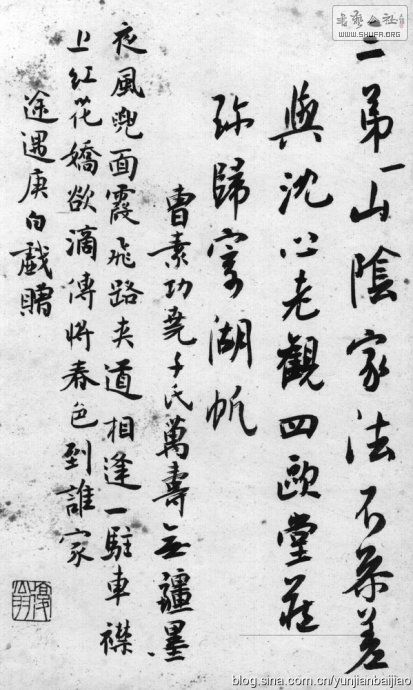 书艺公社
WWW.SHUFA.ORG
二第一山陰家法不参差
與沈心老觀四歐堂藏
珎歸寫湖帆
曹素功堯千氏萬壽无疆墨
夜風兜面霞飛路夾道相逢一駐車襟
上紅花嬌欲滴傳將春色到誰家
途遇庚白戲贈
blog.sina.com.cn/yunjianbaijiao